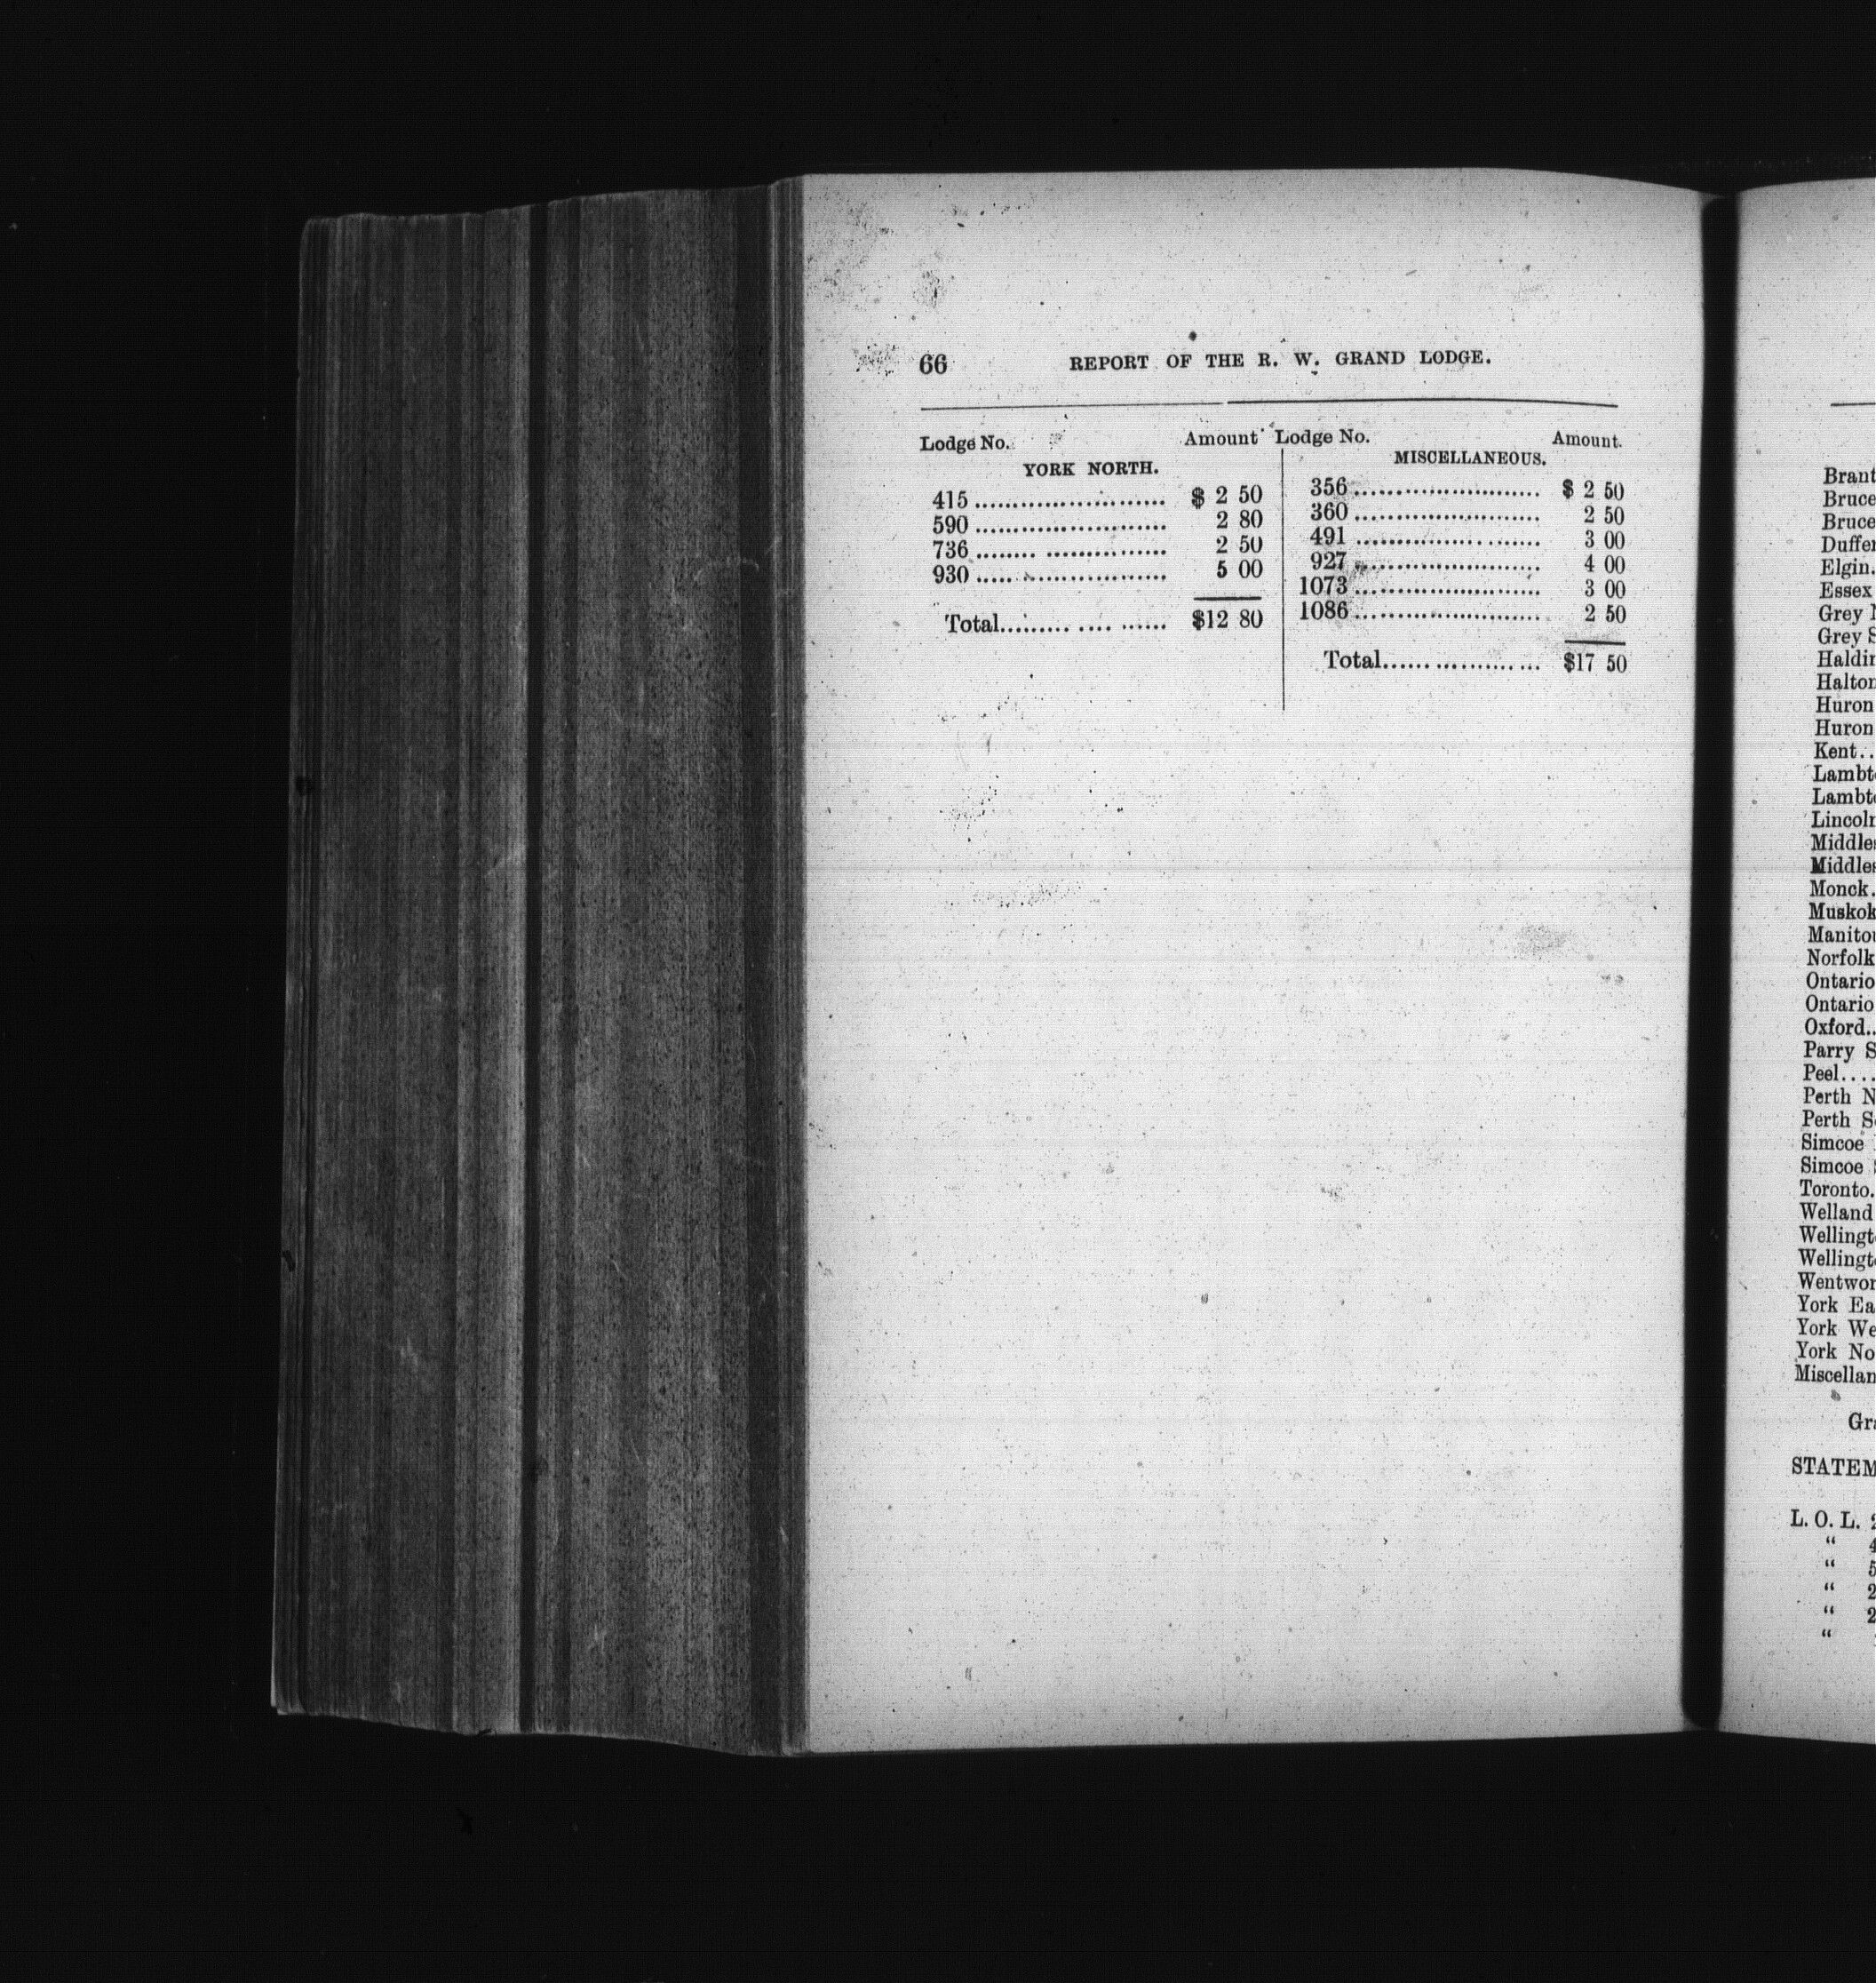 66 REPORT OF THE R. W. GRAND LODGE.
Lodge No. Amount
YORK NORTH.
415 ........................ $ 2 50
590 ........................ 2 80
736 ........ ............... 2 50
930 ..... .................. 5 00
Total......... .... ...... $12 80
Lodge No. Amount.
MISCELLANEOUS.
356 ........................ $ 2 50
360 ........................ 2 50
491 ........................ 3 00
927 ........................ 4 00
1073 ........................ 3 00
1086 ........................ 2 50
Total...... ............. ... $17 50
Brant
Bruce
Bruce
Duffer
Elgin.
Essex
Grey
Grey
Haldin
Halton
Huron
Huron
Kent..
Lambt
Lambt
Lincoln
Middles
Middles
Monck.
Muskok
Manitou
Norfolk
Ontario
Ontario
Oxford..
Parry S
Peel....
Perth N
Perth S
Simcoe
Simcoe
Toronto.
Welland
Wellingt
Wellingt
Wentwor
York Ea
York We
York No
Miscellan
Gr
STATEM
L. O. L. 2
“ 4
“ 5
“ 2
“ 2
“